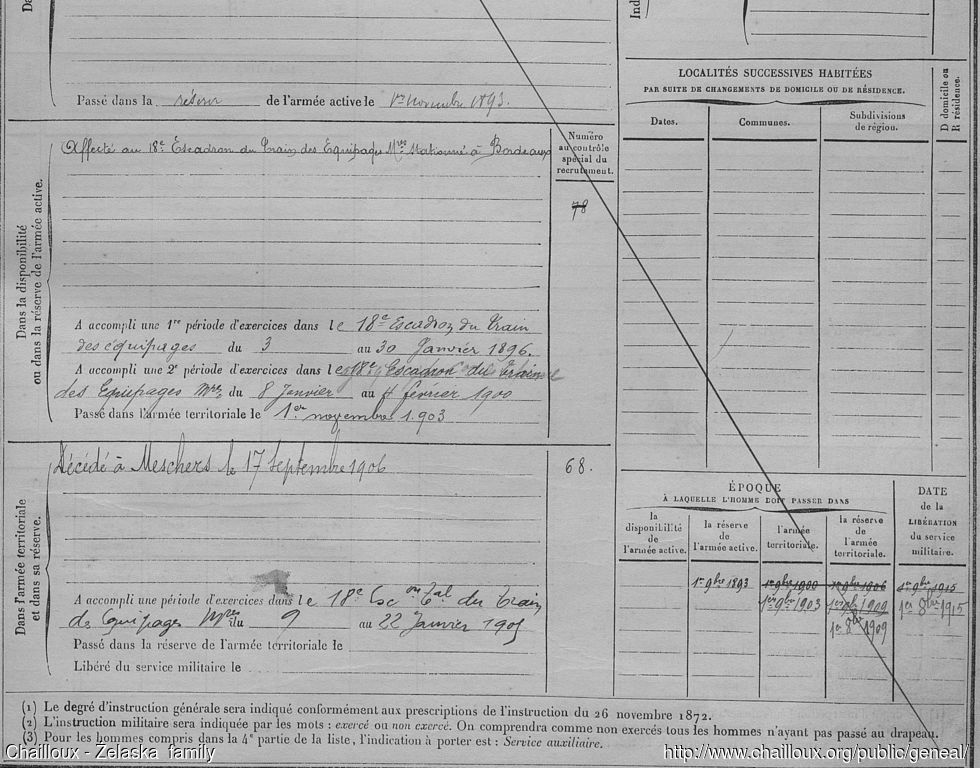 Passé dans la réserve de l'armée active le 1er novembre 1893.
Dans la disponibilité
ou dans la réserve de l'armée active.
Affecté au 18e Escadron du Train des Equipages Mres stationné à Bordeaux
Numéro
au contrôle
spécial du
recrutement.
78
A accompli une 1re période d'exercices dans le 18e Escadron du Train
des équipages du 3 au 30 Janvier 1896.
A accompli une 2e période d'exercices dans le 18e Escadron du Train
des Equipages Mres du 8 Janvier au 4 février 1900
Passé dans l'armée territoriale le 1er novembre 1903
Dans l'armée territoriale
et dans sa réserve.
Décédé à Meschers le 17 Septembre 1906
68.
A accompli une période d'exercices dans le 18e Esc on Tal du Train
des Equipages Mres du 9 au 22 Janvier 1905
Passé dans la réserve de l'armée territoriale le
Libéré du service militaire le
LOCALITÉS SUCCESSIVES HABITÉES
PAR SUITE DE CHANGEMENTS DE DOMICILE OU DE RÉSIDENCE.
Dates.
Communes.
Subdivisions
de région.
D domicile ou
R résidence.
ÉPOQUE
À LAQUELLE L'HOMME DOIT PASSER DANS
la
disponibilité
de
l'armée active.
la réserve
de
l'armée active.
l'armée
territoriale.
la réserve
de
l'armée
territoriale.
DATE
de la
LIBÉRATION
du service
militaire.
1er 9bre 1893 1er 9bre 1900 1er 9bre 1906 1er 9bre 1915
1er 9bre 1903 1er 9bre 1909 1er 8bre 1915
1er 8bre 1909
(1) Le degré d'instruction générale sera indiqué conformément aux prescriptions de l'instruction du 26 novembre 1872.
(2) L'instruction militaire sera indiquée par les mots : exercé ou non exercé. On comprendra comme non exercés tous les hommes n'ayant pas passé au drapeau.
(3) Pour les hommes compris dans la 4e partie de la liste, l'indication à porter est : Service auxiliaire.
Chailloux - Zelaska family
http://www.chailloux.org/public/geneal/